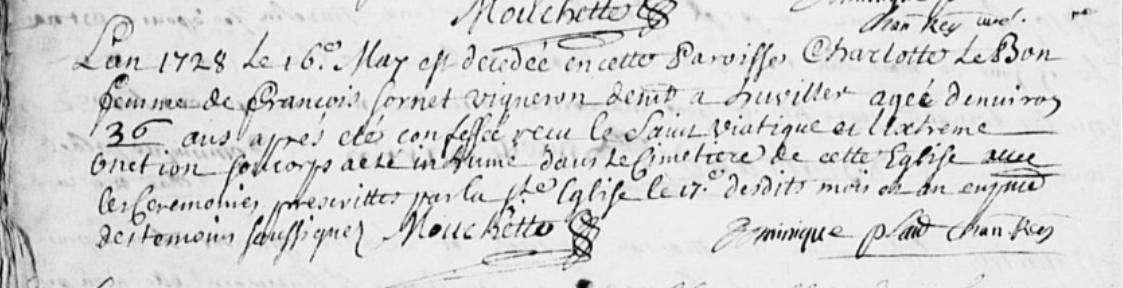 Mouchette
Chan Reg
L'an 1728 le 16e. May est decedée en cette Paroisse Charlotte Le Bon
femme de François Sornet vigneron demt a huviller ageé d'environ
36 ans aprés eté confessée reçu le Saint Viatique et l'extreme
Onction son corps a eté inhumé dans le Cimetiere de cette Eglise avec
les Ceremonies prescrittes par la Ste Eglise le 17.e desdits mois et an en pnce
des temoins soussignez Mouchette Dominique Chan. Reg